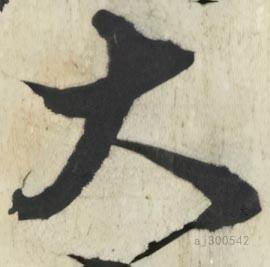 大
aj300542